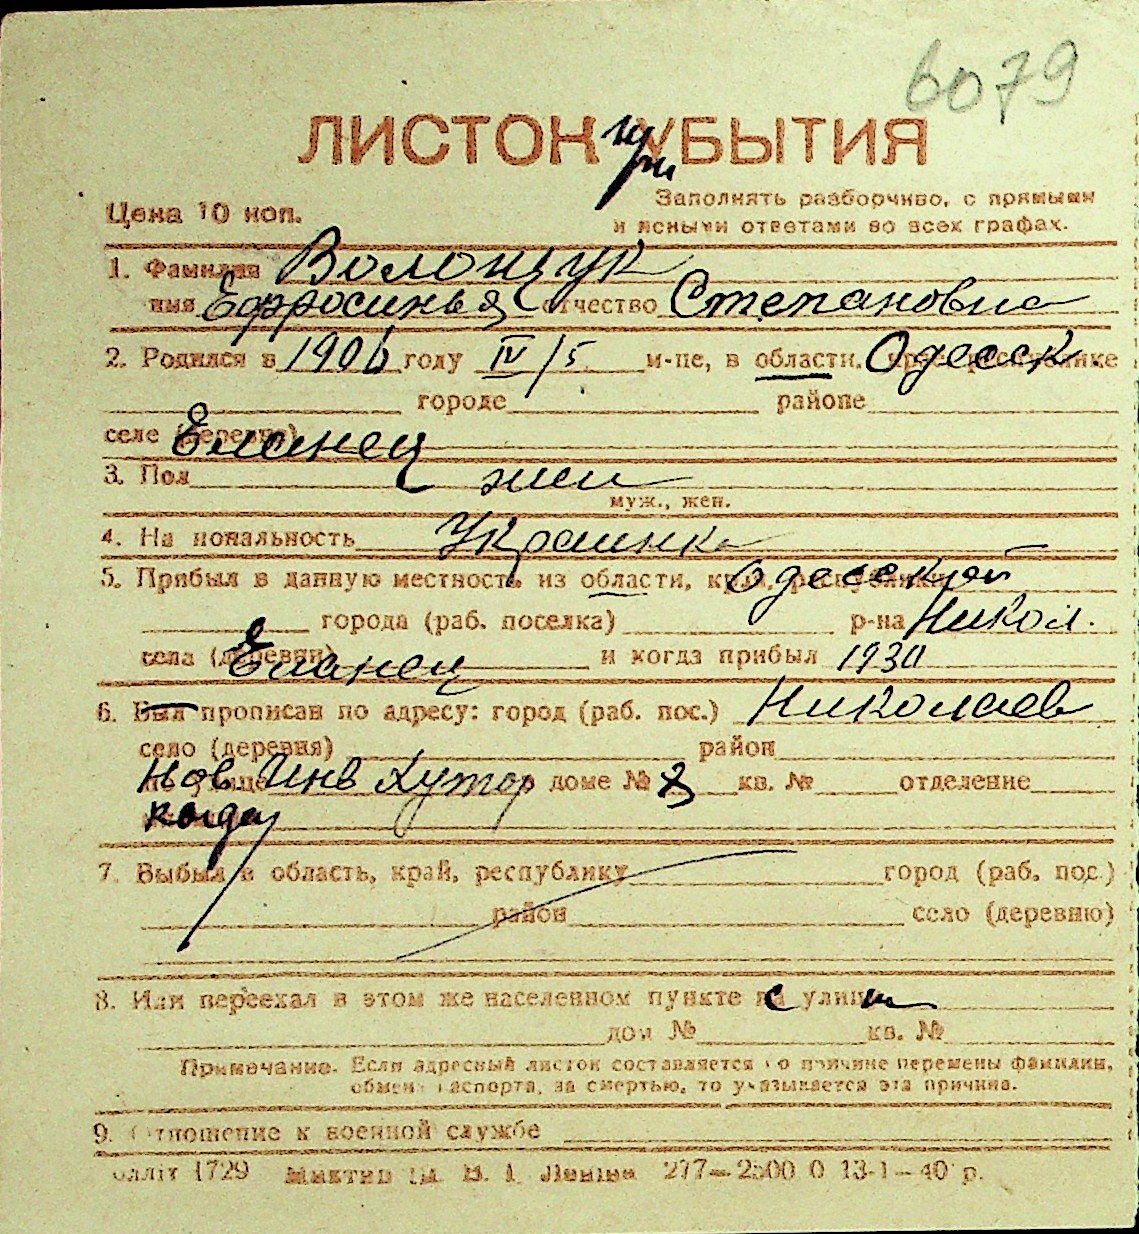 6079
ЛИСТОК при УБЫТИЯ
Цена 10 коп.
Заполнять разборчиво, с прямыми
и ясными ответами во всех графах.
1. Фамилия Волощук
имя Ефросинья отчество Степановна
2. Родился в 1906 году IV/5 м-це, в области, крае, республике Одесск
городе районе
селе (деревне) Еланец
3. Пол жен
муж., жен.
4. Национальность Украинка
5. Прибыл в данную местность из области, края, республики Одесской
города (раб. поселка) р-на Никол.
села (деревни) Еланец и когда прибыл 1930
6. Был прописан по адресу: город (раб. пос.) Николаев
село (деревня) район
Нов Инв Хутор доме № кв. № отделение
7. Выбыл в область, край, республику город (раб. пос.)
район село (деревню)
8. Или переехал в этом же населенном пункте с улицы
дом № кв. №
Примечание. Если адресный листок составляется по причине перемены фамилии,
обмена паспорта, за смертью, то указывается эта причина.
9. Отношение к военной службе
1729 В. І. Леніна 277—2500 0 13-1-40 р.